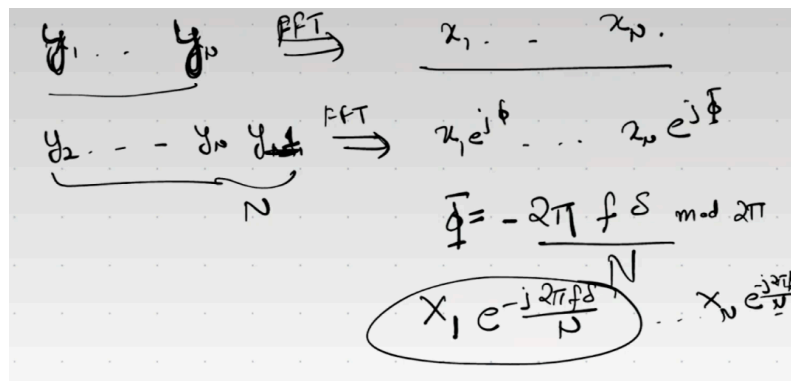 y₁ . . yₙ FFT ⇒ x₁ . . xₙ .
y₂ . . - yₙ y₁ FFT ⇒ x₁e^{jϕ} . . . xₙe^{jΦ}
N
Φ = - 2π f δ / N mod 2π
X₁ e^{-j2πfδ/N} . . . Xₙ